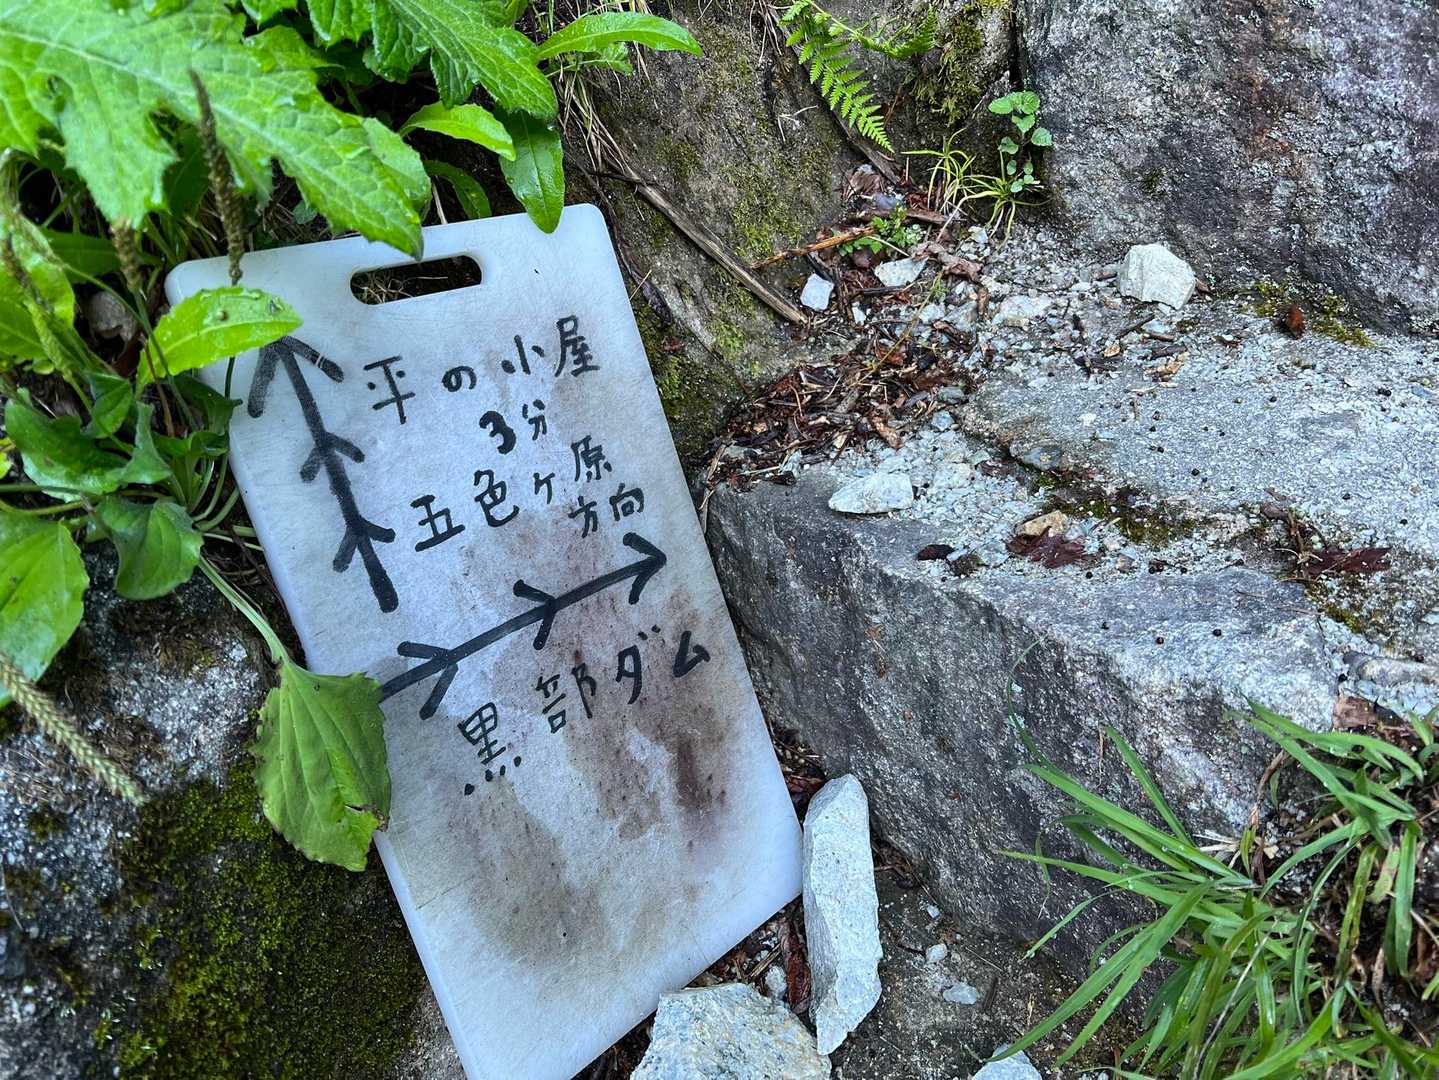 平の小屋
3分
五色ヶ原
方向
黒部ダム